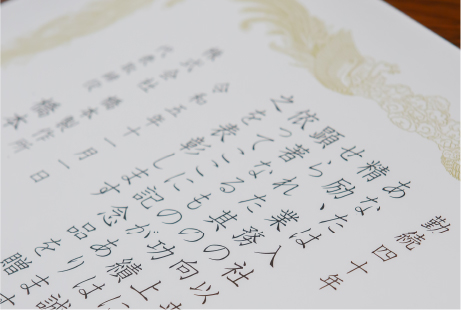 勤続四十年
あなたは入社以
精励、業務の向上
せられた其の功績は誠
顕著なるものがあります
依ってここに記念品を贈
之を表彰します
令和五年十一月一日
株式会社 橋本製作所
代表取締役 橋本